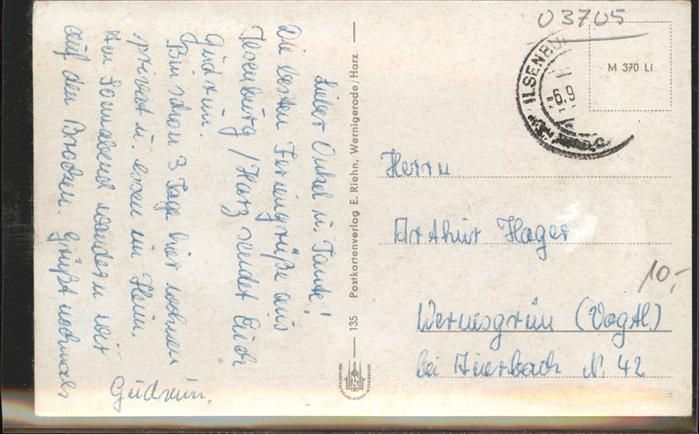 Lieber Onkel u. Tante!
Die besten Feriengrüße aus
Ilsenburg/Harz sendet Euch
Gudrun.
Bin schon 3 Tage hier wohnen
privat u. essen im Heim.
Am Sonnabend wandern wir
auf den Brocken. Grüßt nochmals
Gudrun.
135 Postkartenverlag E. Riehn, Wernigerode/Harz
03705
M 370 LI
ILSENBU
-6.9
Herrn
Arthur Hager
Wernesgrün (Vogtl)
bei Auerbach N. 42
10,-